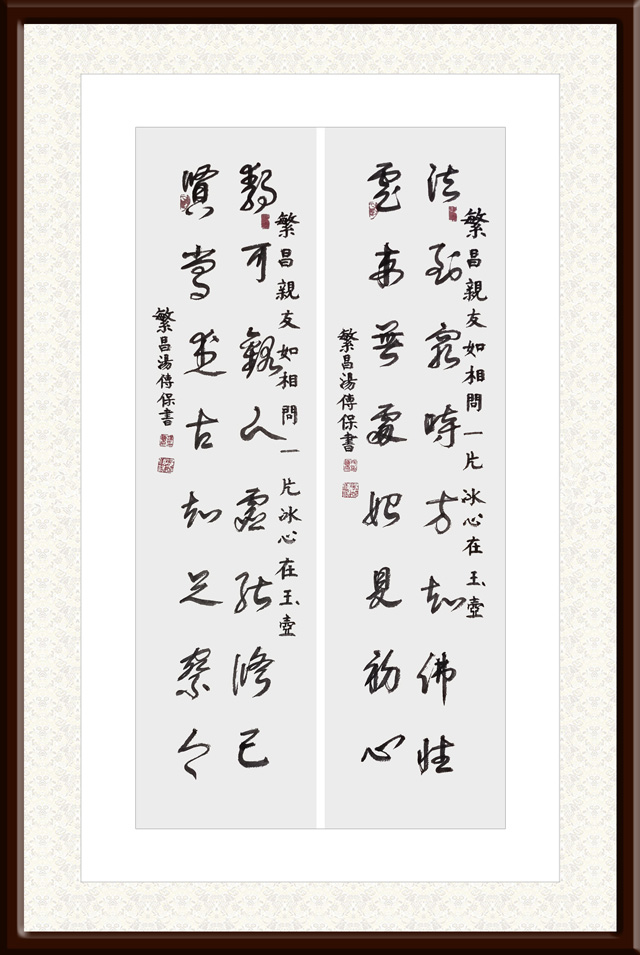 繁昌親友如相問一片冰心在玉壺
法到時方知佛性
來無處始見初心
繁昌湯傳保書
繁昌親友如相問一片冰心在玉壺
可觀人虛能修己
賢當述古知足察今
繁昌湯傳保書